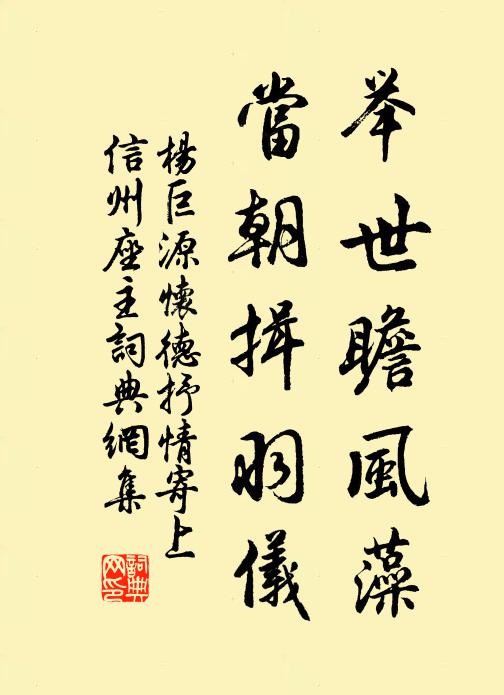 举世瞻風藻
當朝揖羽儀
楊巨源懷德抒情寄上
信州座主詞典網集
詞典
网印